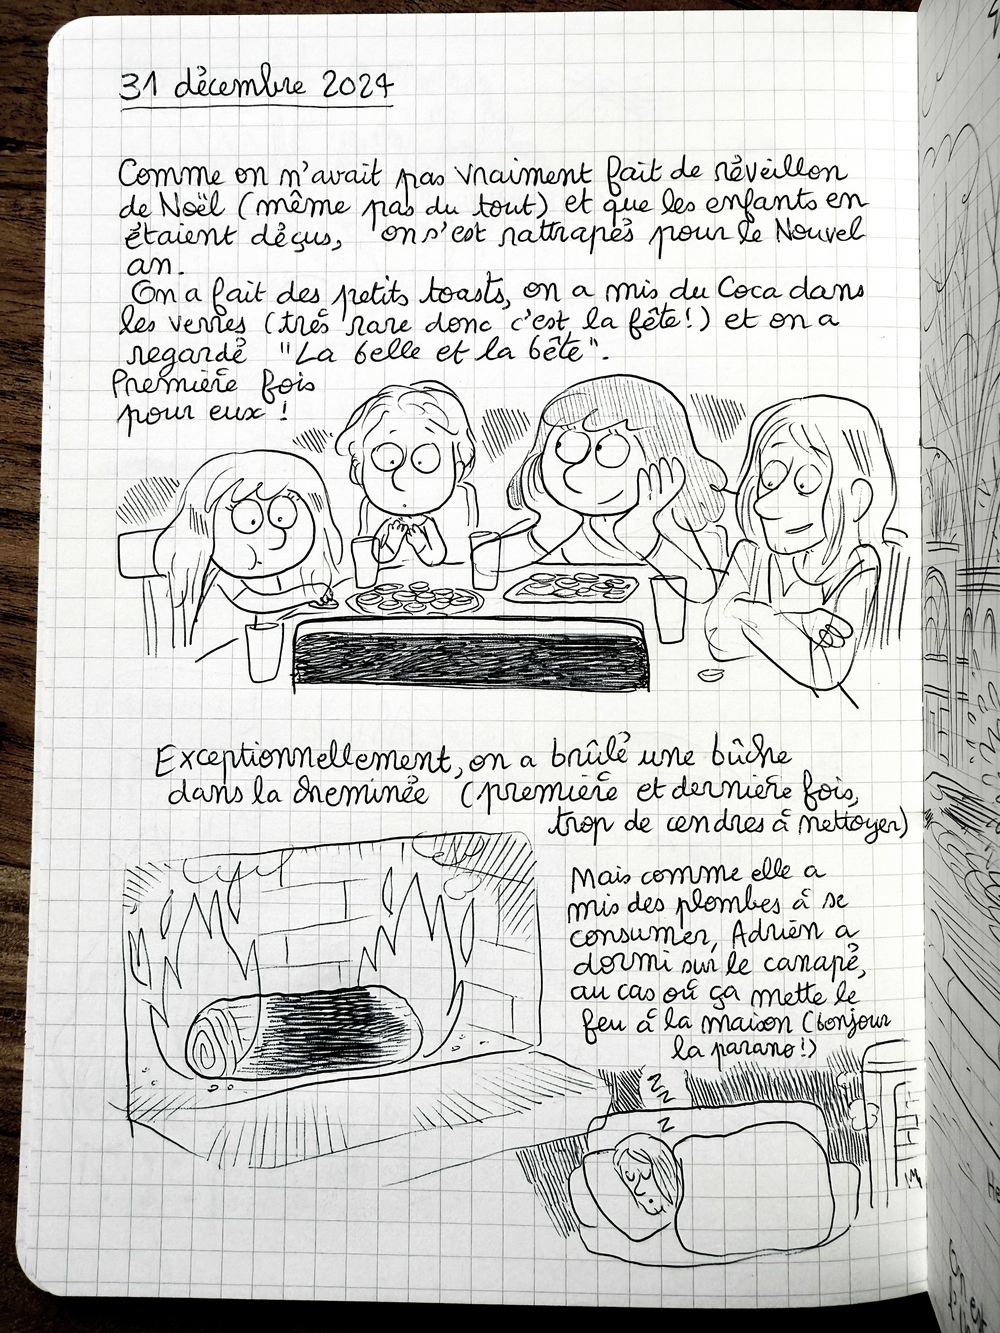 31 décembre 2024
Comme on n'avait pas vraiment fait de réveillon
de Noël (même pas du tout) et que les enfants en
étaient déçus, on s'est rattrapés pour le Nouvel
an.
On a fait des petits toasts, on a mis du Coca dans
les verres (très rare donc c'est la fête!) et on a
regardé "La belle et la bête".
Première fois
pour eux !
Exceptionnellement, on a brûlé une bûche
dans la cheminée (première et dernière fois,
trop de cendres à nettoyer)
Mais comme elle a
mis des plombes à se
consumer, Adrien a
dormi sur le canapé,
au cas où ça mette le
feu à la maison (bonjour
la parano!)
Z
Z
Z
Z